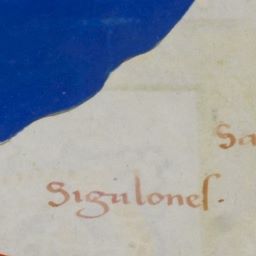 Sa
Sigulones.